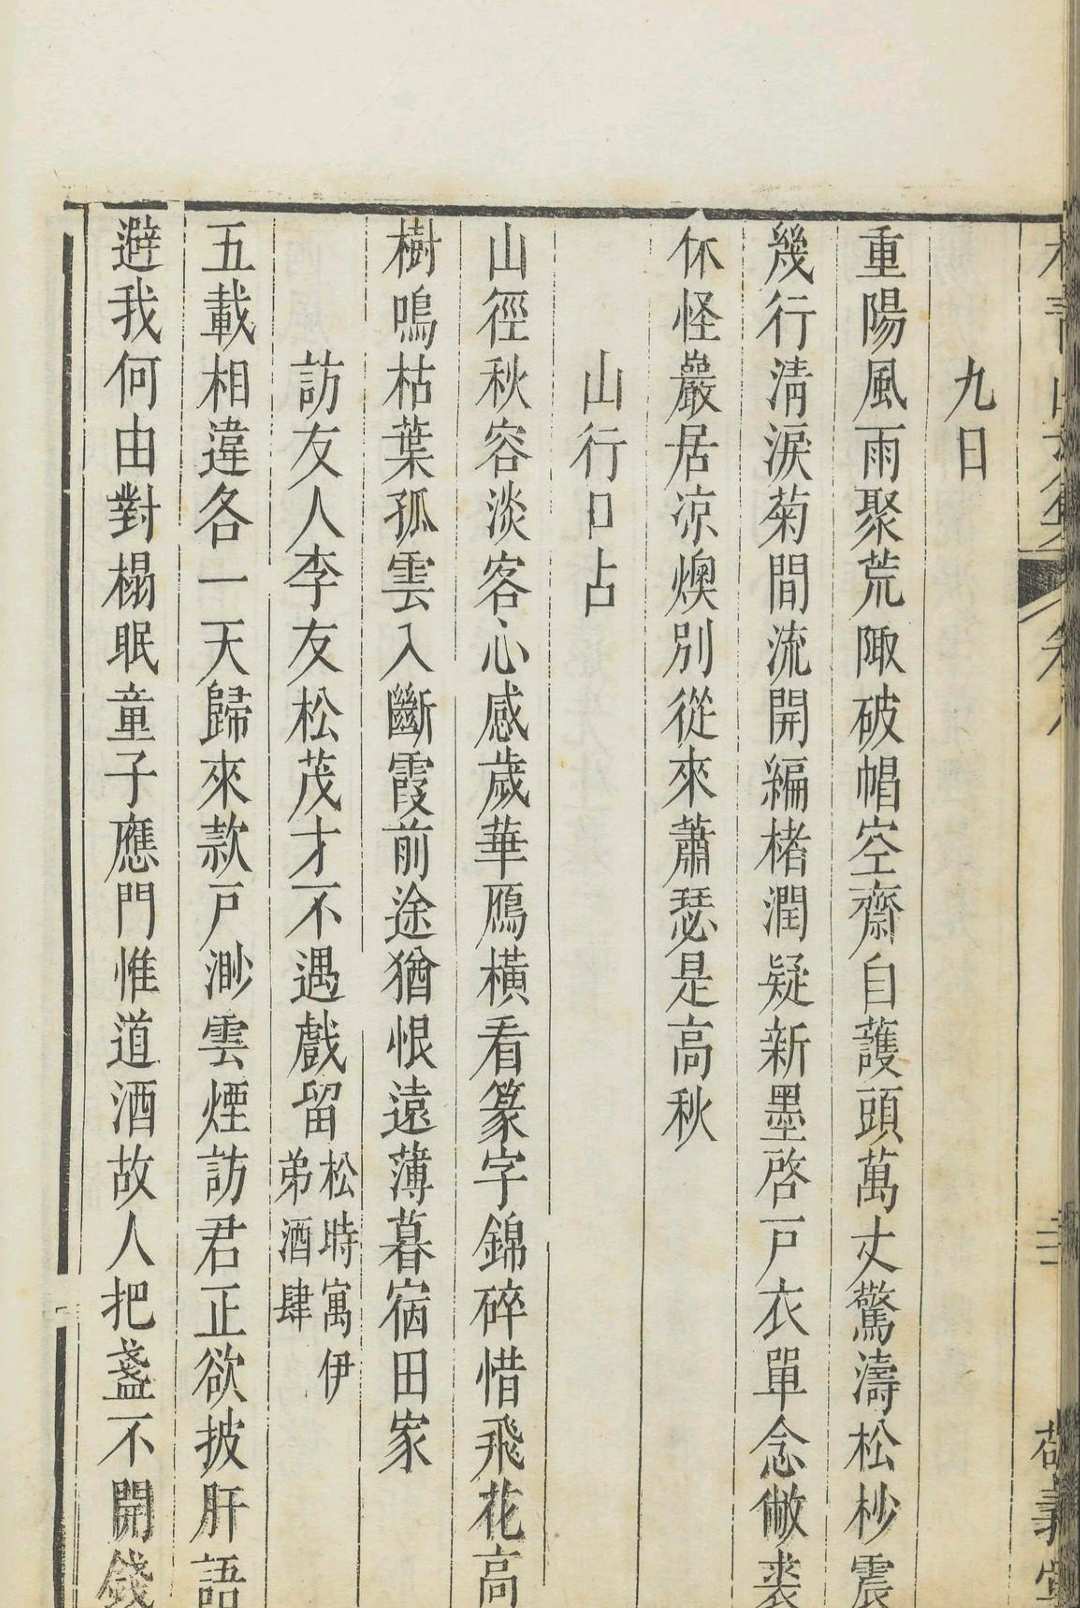 九日
重陽風雨聚荒陬破帽空齋自護頭萬丈驚濤松杪震
幾行淸淚菊間流開編楮潤疑新墨啓戶衣單念敝裘
休怪巖居凉燠別從來蕭瑟是高秋
山行口占
山徑秋容淡客心感歲華鴈橫看篆字錦碎惜飛花高
樹鳴枯葉孤雲入斷霞前途猶恨遠薄暮宿田家
訪友人李友松茂才不遇戲留松時寓伊弟酒肆
五載相違各一天歸來款戶渺雲煙訪君正欲披肝語
避我何由對榻眠童子應門惟道酒故人把盞不開錢